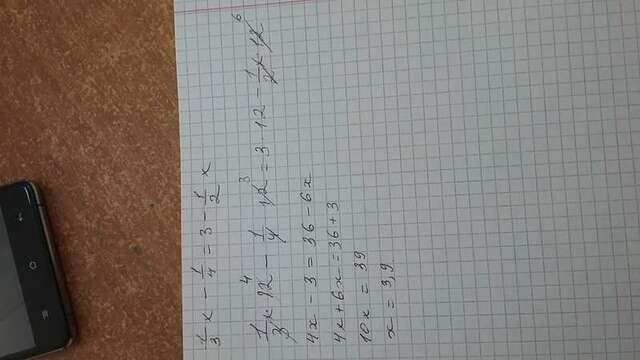 1/3 x - 1/4 = 3 - 1/2 x
1/3 x · 12 4 - 1/4 · 12 3 = 3 · 12 - 1/2 x · 12 6
4x - 3 = 36 - 6x
4x + 6x = 36 + 3
10x = 39
x = 3,9